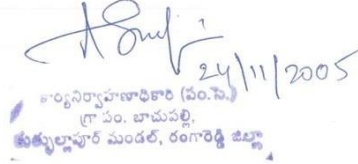 24/11/2005
కార్యనిర్వాహణాధికారి (పం.సె.)
గ్రా పం. బాచుపల్లి,
కుత్బుల్లాపూర్ మండల్, రంగారెడ్డి జిల్లా